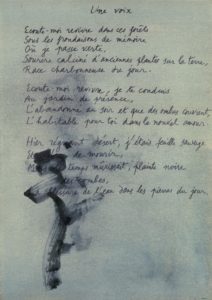 Une voix
Ecoute-moi revivre dans ces forêts
Sous les frondaisons de mémoire
Où je passe verte,
Sourire calciné d'anciennes plantes sur la terre,
Race charbonneuse du jour.
Ecoute-moi revivre, je te conduis
Au jardin de présence,
L'abandonné au soir et que des ombres couvrent,
L'habitable pour toi dans le nouvel amour.
Hier régnant désert, j'étais feuille sauvage
de mourir,
temps mûrissait, plainte noire
combes,
de l'eau dans les pierres du jour.